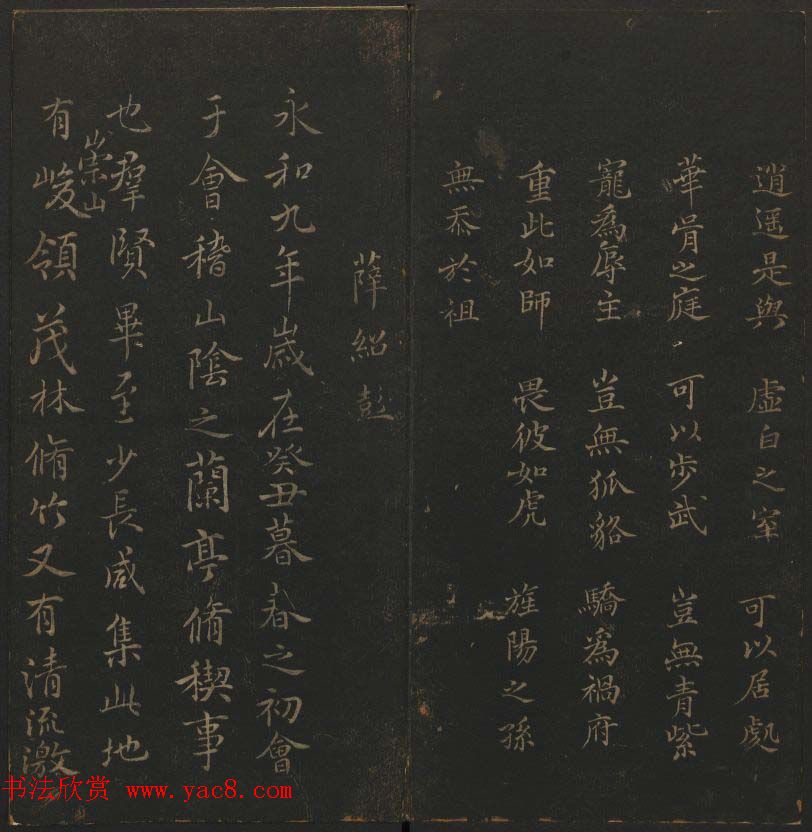 逍遥是與 虛白之室 可以居處
華胥之庭 可以步武 豈無青紫
寵爲辱主 豈無狐貉 驕為禍府
重此如師 畏彼如虎 旌陽之孫
無忝於祖
薛紹彭
永和九年嵗在癸丑暮春之初會
于會稽山陰之蘭亭脩稧事
也羣賢畢至少長咸集此地
有崇山峻領茂林脩竹又有清流激
书法欣赏 www.yac8.com